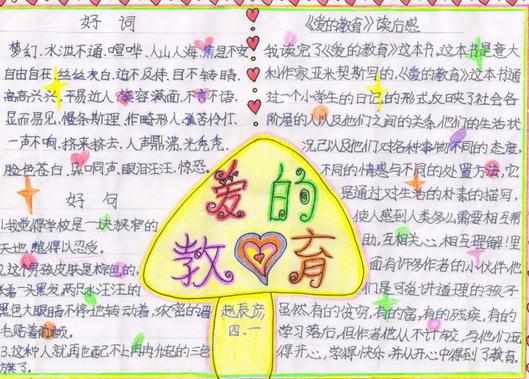 好 词
梦幻．水泄不通．喧哗．人山人海．焦急不安
自由自在．丝丝灰白．迫不及待．目不转睛．
高高兴兴．平易近人．笑容满面．不言不语．
显而易见．慢条斯理．作畸形人．孤苦伶仃．
一声不响．挤来挤去．人声鼎沸．光秃秃．
脸色苍白．异口同声．眼泪汪汪．惊恐．
好 句
1.我觉得学校是一块狭窄的
天地，难得以忍受。
2.这个男孩皮肤是棕色的，
一头黑发，两只水汪汪的
黑色大眼睛不停地转动着，浓密的眉
毛贴着前额。
3.这种人就再也配不上冉冉升起的三色
旗了。
《爱的教育》读后感
我读完了《爱的教育》这本书，这本书是意大
利作家亚米契斯写的，《爱的教育》这本书通
过一个小学生的日记的形式，反映了社会各
阶层的人以及他们之间的关系，他们的生活状
况，以及他们对各种事物不同的态度，
不同的情感与不同的处置方法，它
是通过对生活的朴素的描写，
使人感到人类多么需要相互帮
助，互相关心，相互理解！里
面有许多作者的小伙伴，他
们是可爱、讲道理的孩子
虽然有的贫穷，有的富，有的残疾，有的
学习落后，但作者他从不计较，与他们玩
得开心，学得快乐，并从开心中得到了教育。
爱的
教育
赵辰彦
四．一